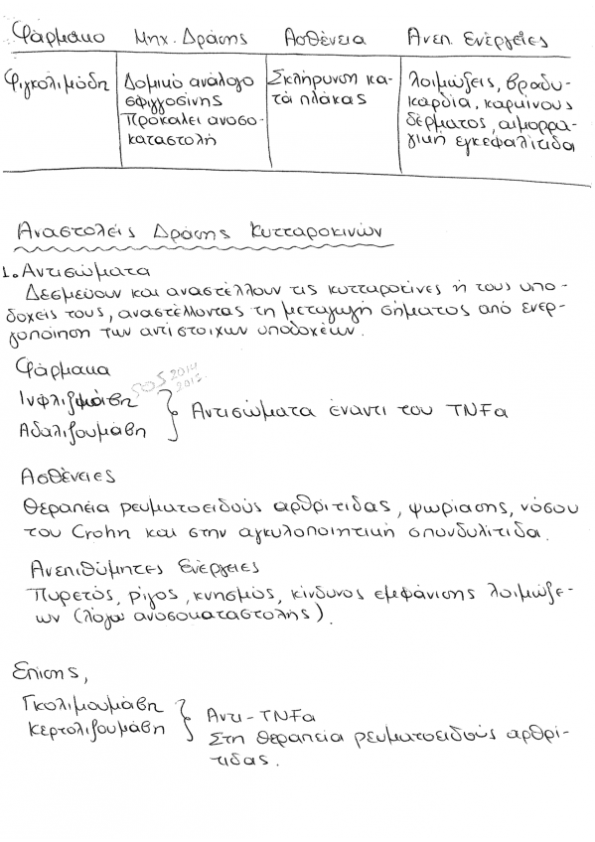 Φάρμακο Μηχ. Δράσης Ασθένεια Ανεπ. Ενέργειες
Φιγκολιμόδη Δομικό ανάλογο σφιγγοσίνης Προκαλεί ανοσοκαταστολή Σκλήρυνση κατά πλάκας λοιμώξεις, βραδυκαρδία, καρκίνους δέρματος, αιμορραγική εγκεφαλίτιδα
Αναστολείς Δράσης Κυτταροκινών
1. Αντισώματα
Δεσμεύουν και αναστέλλουν τις κυτταροκίνες ή τους υπο-
δοχείς τους, αναστέλλοντας τη μεταγωγή σήματος από ενερ-
γοποίηση των αντίστοιχων υποδοχέων.
Φάρμακα
SOS 2014
Ινφλιξιμάβη
Αδαλιζουμάβη
Αντισώματα έναντι του TNFα
Ασθένειες
Θεραπεία ρευματοειδούς αρθρίτιδας, ψωρίασης, νόσου
του Crohn και στην αγκυλοποιητική σπονδυλίτιδα.
Ανεπιθύμητες Ενέργειες
Πυρετός, ρίγος, κνησμός, κίνδυνος εμφάνισης λοιμώξε-
ων (λόγω ανοσοκαταστολής).
Επίσης,
Γκολιμουμάβη
Κερτολιζουμάβη
Αντι-TNFα
Στη θεραπεία ρευματοειδούς αρθρί-
τιδας.